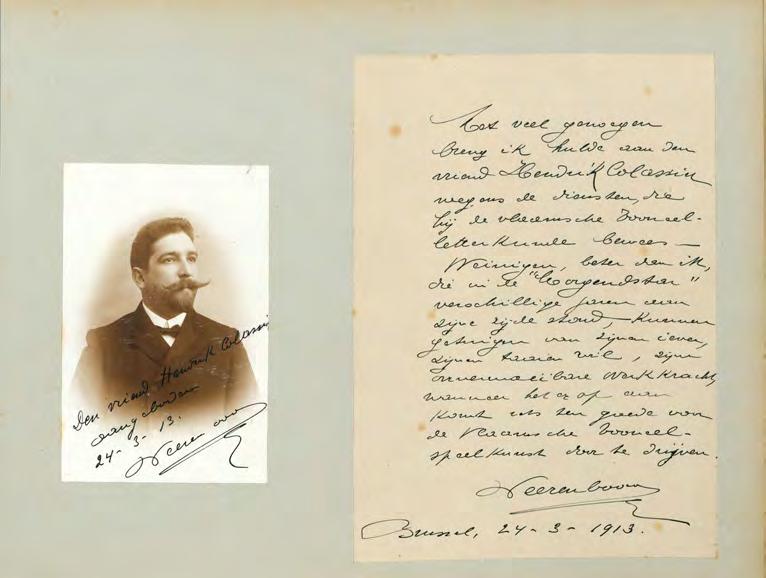 Den vriend Hendrik Colassin
aangeboden
24-3-13.
Neerenboom
Met veel genoegen
breng ik hulde aan den
vriend Hendrik Colassin
wegens de diensten, die
hij de vlaamsche tooneel-
letterkunde bewees —
Weinigen, beter dan ik,
die in de "Morgendstar"
verschillige jaren aan
zijne zijde stond, kunnen
getuigen van zijnen iever,
zijnen taaien wil, zijne
onvermoeibare werkkracht,
wanneer het er op aan
komt iets ten goede van
de vlaamsche tooneel-
speelkunst door te drijven.
Neerenboom
Brussel, 24-3-1913.